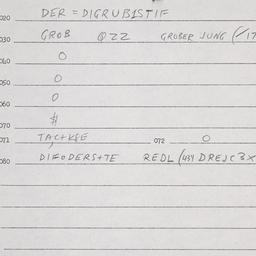 020 DER = DIGRUB1STIF
030 GROB QZZ GROBER JUNG (/17
040 O
050 O
060 O
070 $
071 072 O
080 DIFODERS+TE REDL (434 DREJC 3X